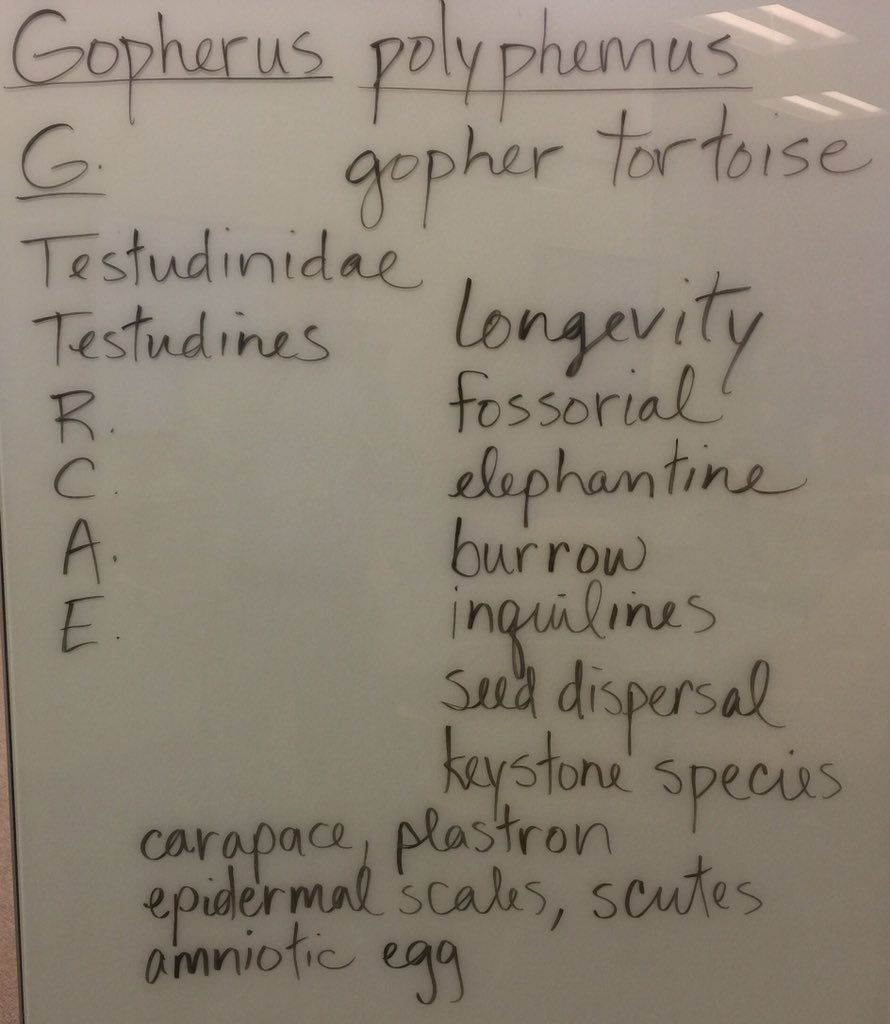 Gopherus polyphemus
G. gopher tortoise
Testudinidae
Testudines
R.
C.
A.
E.
longevity
fossorial
elephantine
burrow
inquilines
seed dispersal
keystone species
carapace, plastron
epidermal scales, scutes
amniotic egg